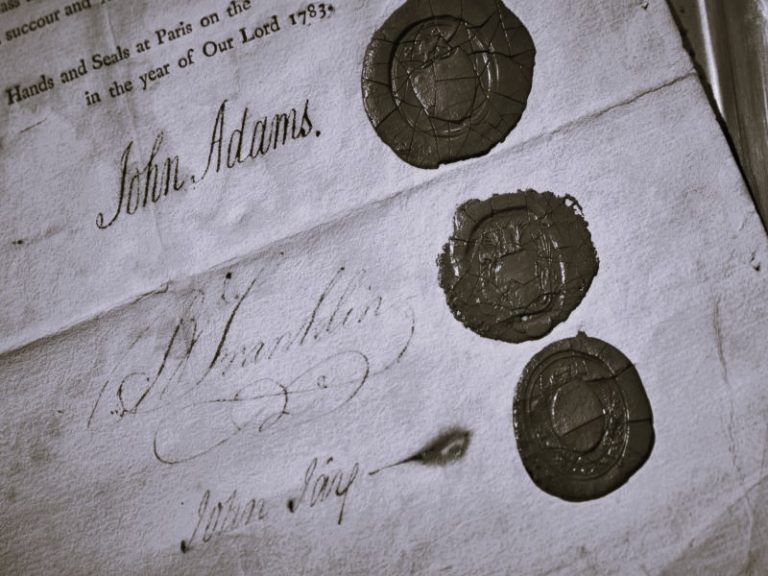 succour and
Hands and Seals at Paris on the
in the year of Our Lord 1783.
John Adams.
B Franklin
John Jay